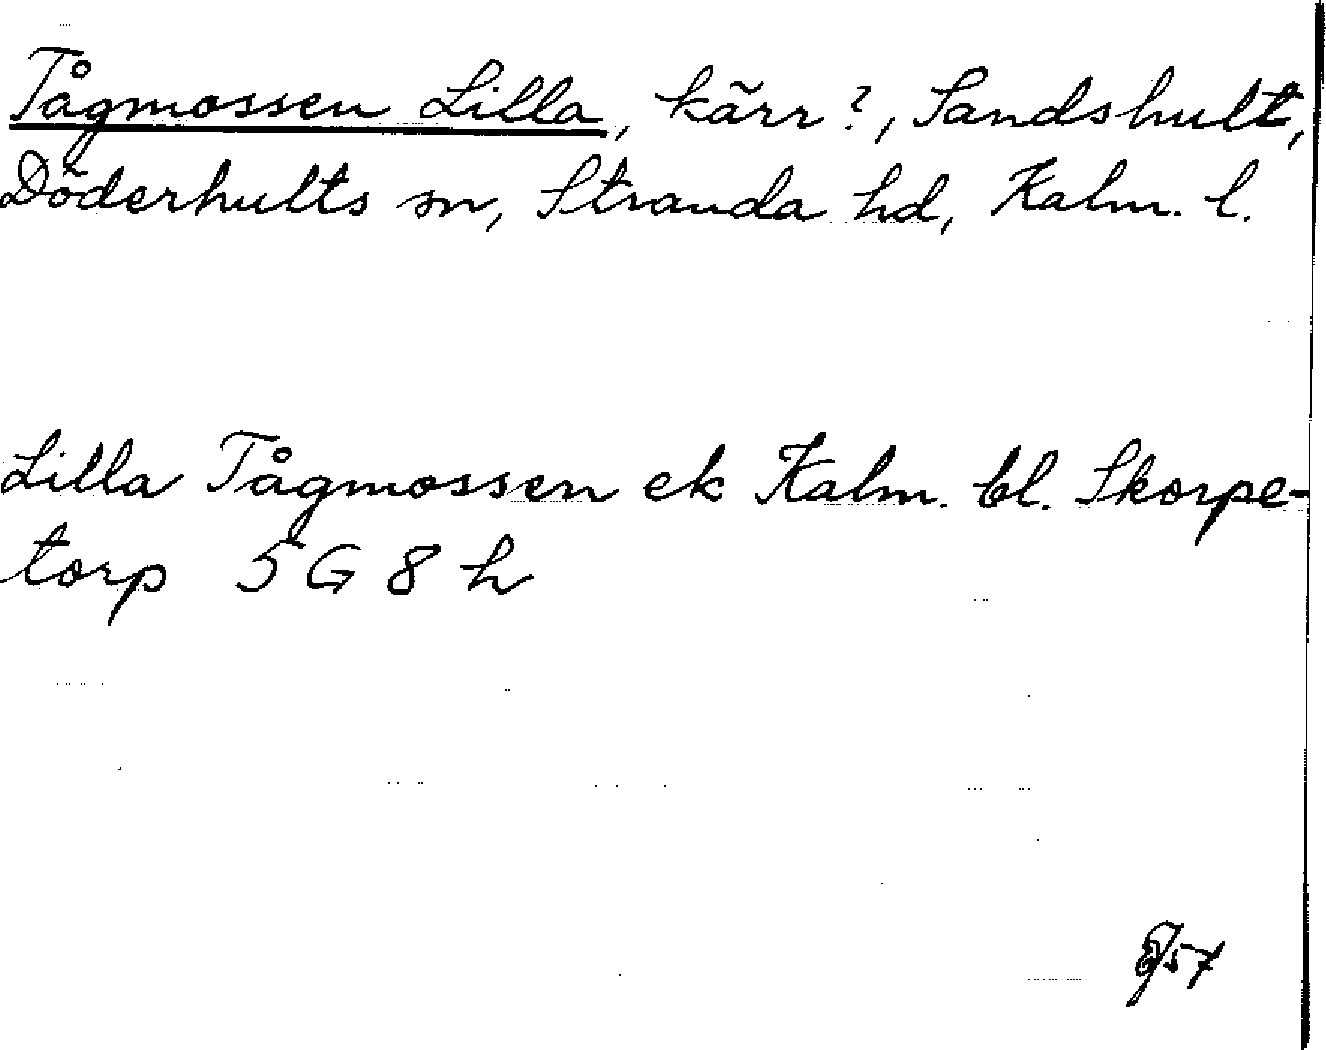 Tågmossen Lilla, kärr?, Sandshult,
Döderhults sn, Stranda hd, Kalm. l.
Lilla Tågmossen ek Kalm. bl. Skorpe-
torp 5 G 8 h